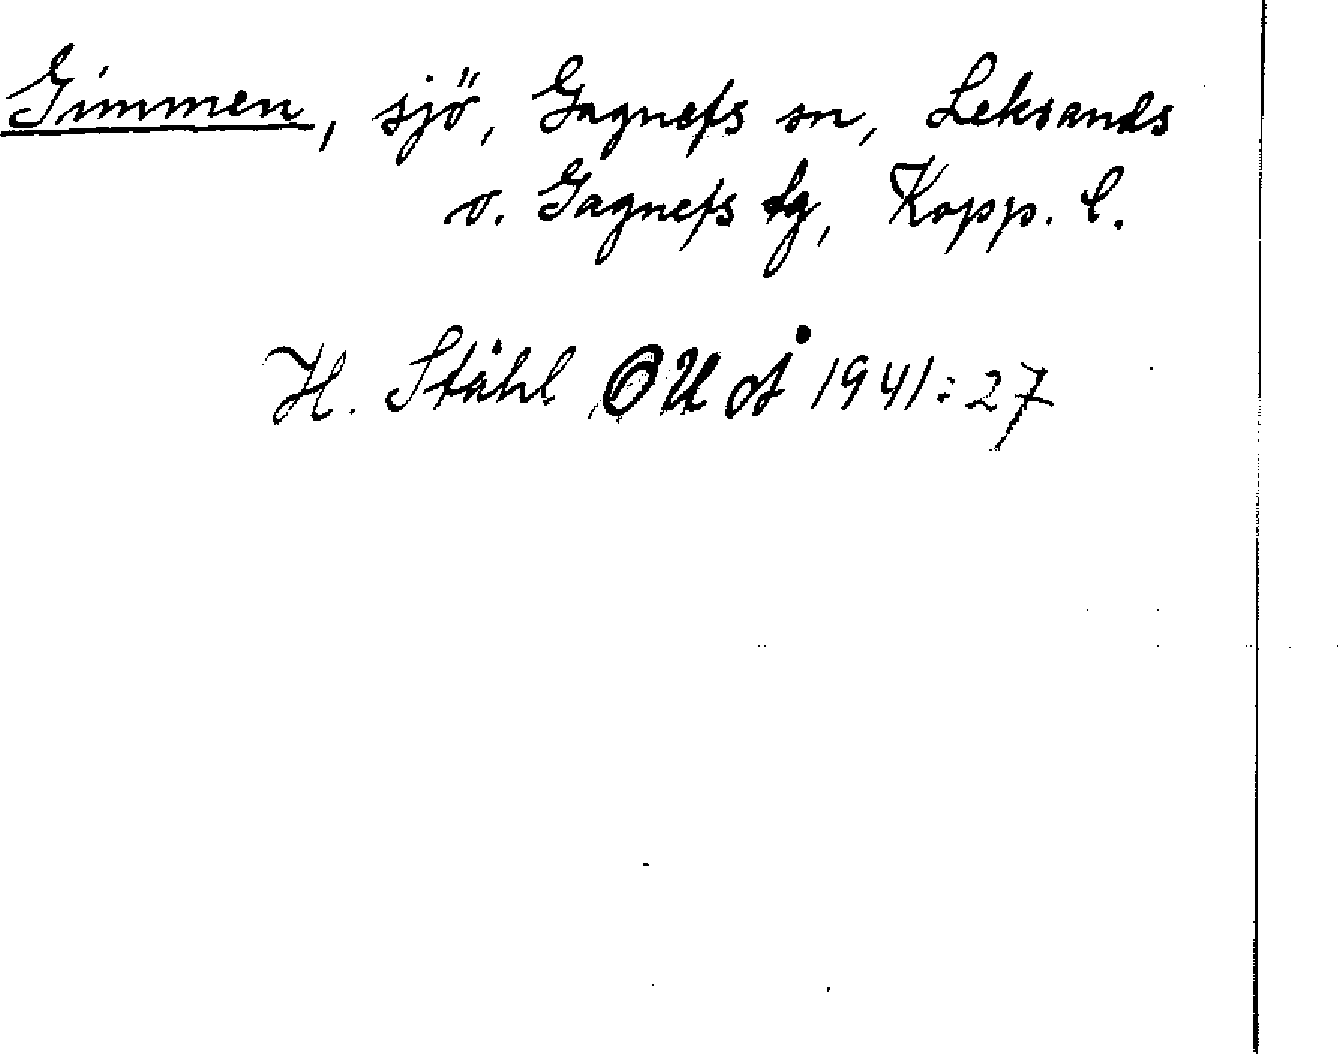 Gimmen, sjö, Gagnefs sn, Leksands
o. Gagnefs tg, Kopp. l.
H. Ståhl OUÅ 1941:27